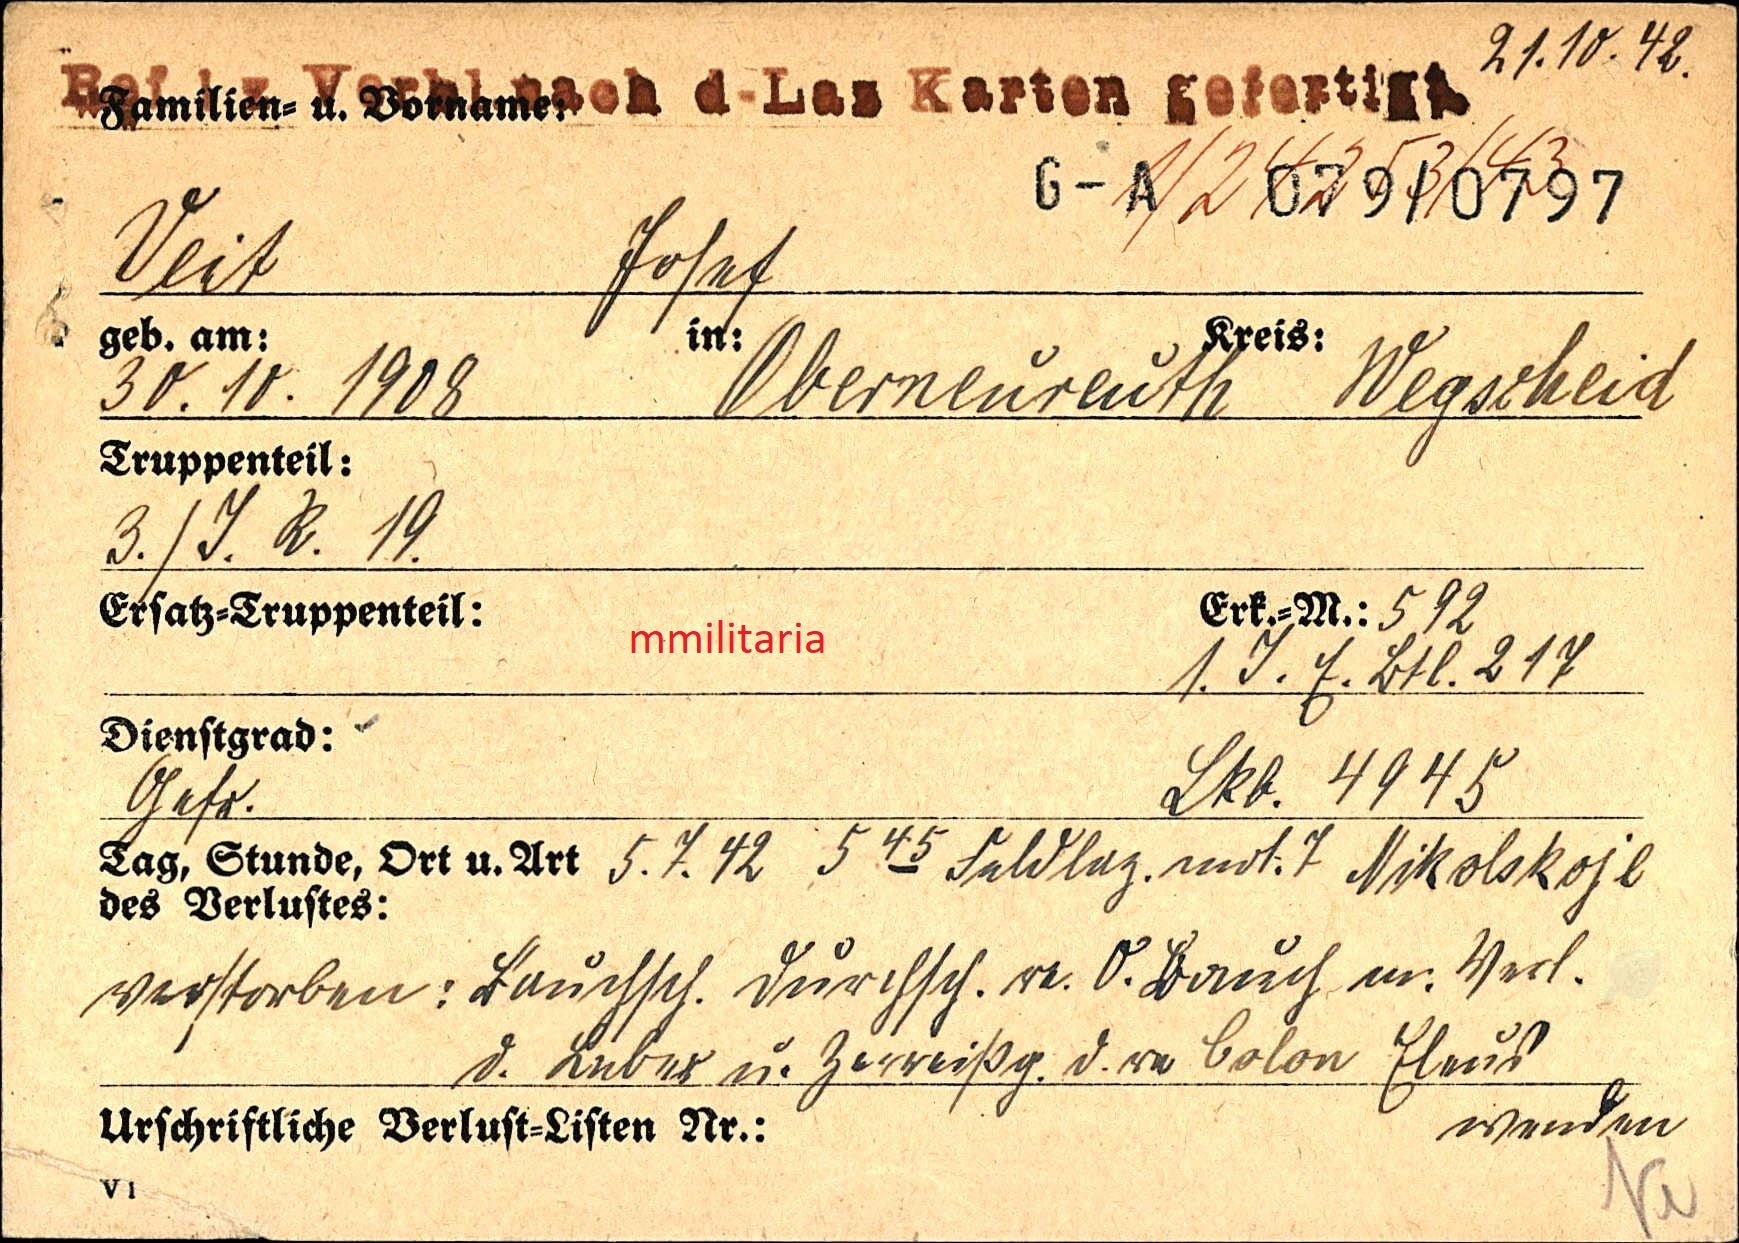 21.10.42.
nach d-Laz Karten gefertigt
Familien- u. Vorname:
G-A 079/0797
Veit Josef
geb. am: in: Kreis:
30.10.1908 Oberneureuth Wegscheid
Truppenteil:
3./J.R. 19.
Ersatz-Truppenteil: Erk.-M.: 592
mmilitaria
1. J. E. Btl. 217
Dienstgrad:
Gefr. Lkb. 4945
Tag, Stunde, Ort u. Art 5.7.42 5 45 Feldlaz. mot. 7 Nikolskoje
des Verlustes:
verstorben: Bauchsch. Durchsch. re. O. Bauch m. Verl.
d. Leber u. Zerreißg. d. re Colon Ileus
Urschriftliche Verlust-Listen Nr.: wenden
V 1